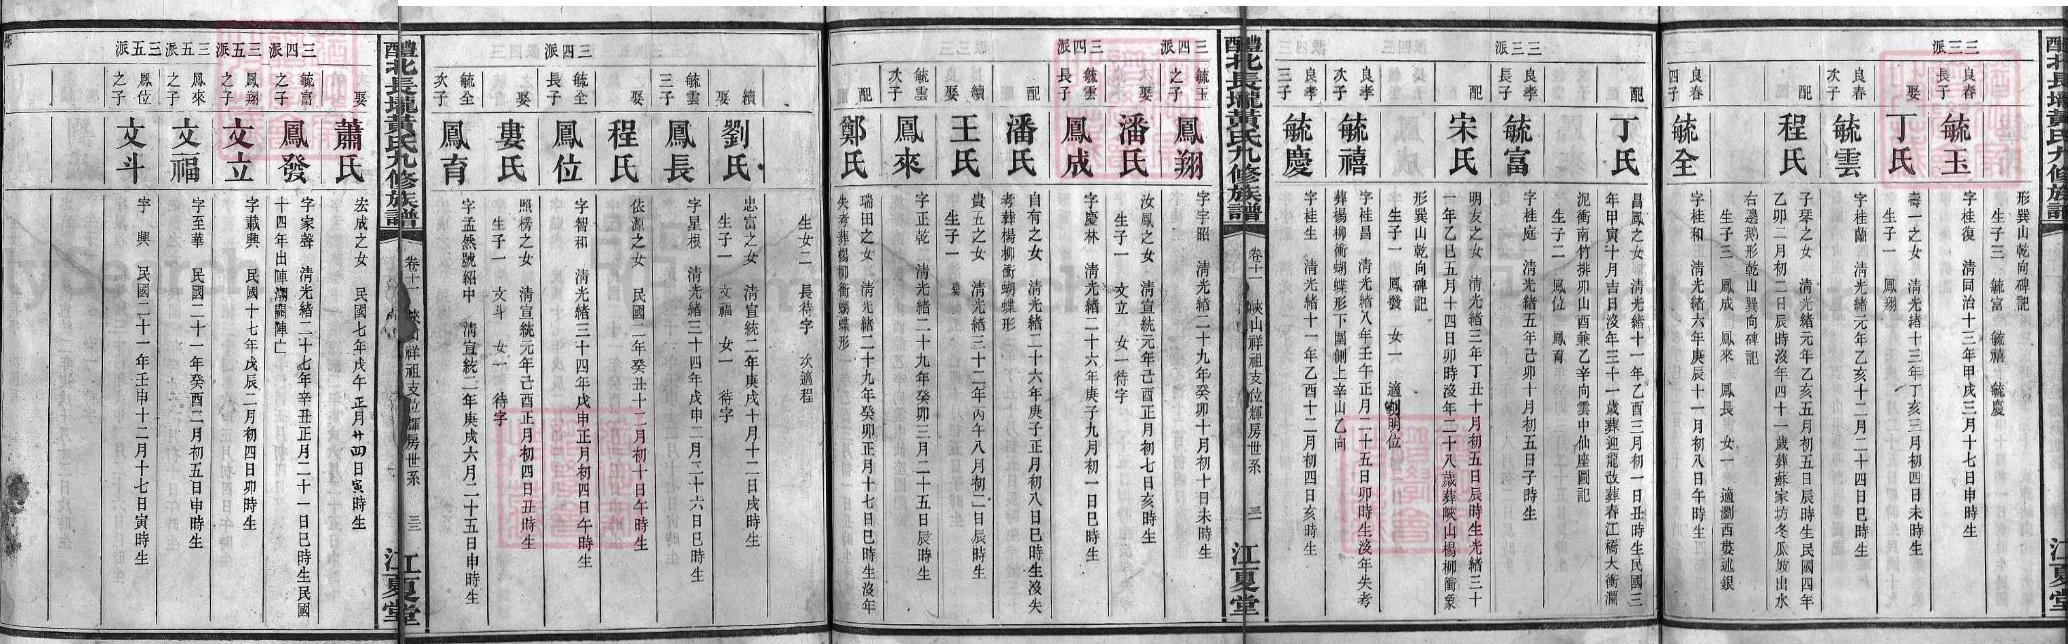 醴北長壠黃氏九修族譜
江夏堂
形巽山乾向碑記
生子三 毓富 毓禧 毓慶
三三派
良春長子
毓玉
字桂復 清同治十三年甲戌三月十七日申時生
娶
丁氏
壽一之女 清光緒十三年丁亥三月初四日未時生
生子一 鳳翔
良春次子
毓雲
字桂蘭 清光緒元年乙亥十二月二十四日巳時生
配
程氏
子琹之女 清光緒元年乙亥五月初五日辰時生民國四年
乙卯二月初二日辰時沒年四十一歲葬蘇家坊冬瓜坡出水
右邊鵝形乾山巽向碑記
生子三 鳳成 鳳來 鳳長 女一 適瀏西婁述銀
良春四子
毓全
字桂和 清光緒六年庚辰十一月初八日午時生
配
丁氏
昌鳳之女 清光緒十一年乙酉三月初一日丑時生民國三
年甲寅十月吉日沒年三十一歲葬迎龍改葬春江橋大衝瀾
泥衝南竹排卯山酉兼乙辛向雲中仙座圖記
生子二 鳳位 鳳育
三三派
良孝長子
毓富
字桂庭 清光緒五年己卯十月初五日子時生
配
宋氏
明友之女 清光緒三年丁丑十月初五日辰時生光緒三十
一年乙巳五月十四日卯時沒年二十八歲葬峽山楊柳衝象
形巽山乾向碑記
生子一 鳳發 女一 適劉明位
良孝次子
毓禧
字桂昌 清光緒八年壬午正月二十五日卯時生沒年失考
葬楊柳衝蝴蝶形下圍側上辛山乙向
良孝三子
毓慶
字桂生 清光緒十一年乙酉十二月初四日亥時生
醴北長壠黃氏九修族譜
卷十一 峽山祥祖支位輝房世系 三一
江夏堂
三四派
毓玉之子
鳳翔
字宇昭 清光緒二十九年癸卯十月初十日未時生
娶
潘氏
汝鳳之女 清宣統元年己酉正月初七日亥時生
生子一 文立 女一待字
三四派
毓雲長子
鳳成
字慶林 清光緒二十六年庚子九月初一日巳時生
配
潘氏
自有之女 清光緒二十六年庚子正月初八日巳時生沒失
考葬楊柳衝蝴蝶形
續娶
王氏
貴五之女 清光緒三十二年丙午八月初二日辰時生
生子一
毓雲次子
鳳來
字正乾 清光緒二十九年癸卯三月二十五日辰時生
配
鄭氏
瑞田之女 清光緒二十九年癸卯正月十七日巳時生沒年
失考葬楊柳衝蝴蝶形
生女二 長待字 次適程
續娶
劉氏
忠富之女 清宣統二年庚戌十月十二日戌時生
生子一 文福 女一 待字
毓雲三子
鳳長
字星根 清光緒三十四年戊申二月二十六日巳時生
娶
程氏
依源之女 民國二年癸丑十二月初十日午時生
三四派
毓全長子
鳳位
字智和 清光緒三十四年戊申正月初四日午時生
娶
婁氏
照榜之女 清宣統元年己酉正月初四日丑時生
生子一 文斗 女一 待字
毓全次子
鳳育
字孟然號紹中 清宣統二年庚戌六月二十五日申時生
醴北長壠黃氏九修族譜
卷十一 峽山祥祖支位輝房世系 三二
江夏堂
娶
蕭氏
宏成之女 民國七年戊午正月廿四日寅時生
三四派
毓富之子
鳳發
字家聲 清光緒二十七年辛丑正月二十一日巳時生民國
十四年出陣潮關陣亡
三五派
鳳翔之子
文立
字載興 民國十七年戊辰二月初四日卯時生
三五派
鳳來之子
文福
字至華 民國二十一年癸酉二月初五日申時生
三五派
鳳位之子
文斗
字 興 民國二十一年壬申十二月十七日寅時生